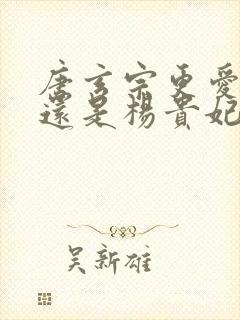 唐玄宗更愛
還是楊貴妃
吳新雄